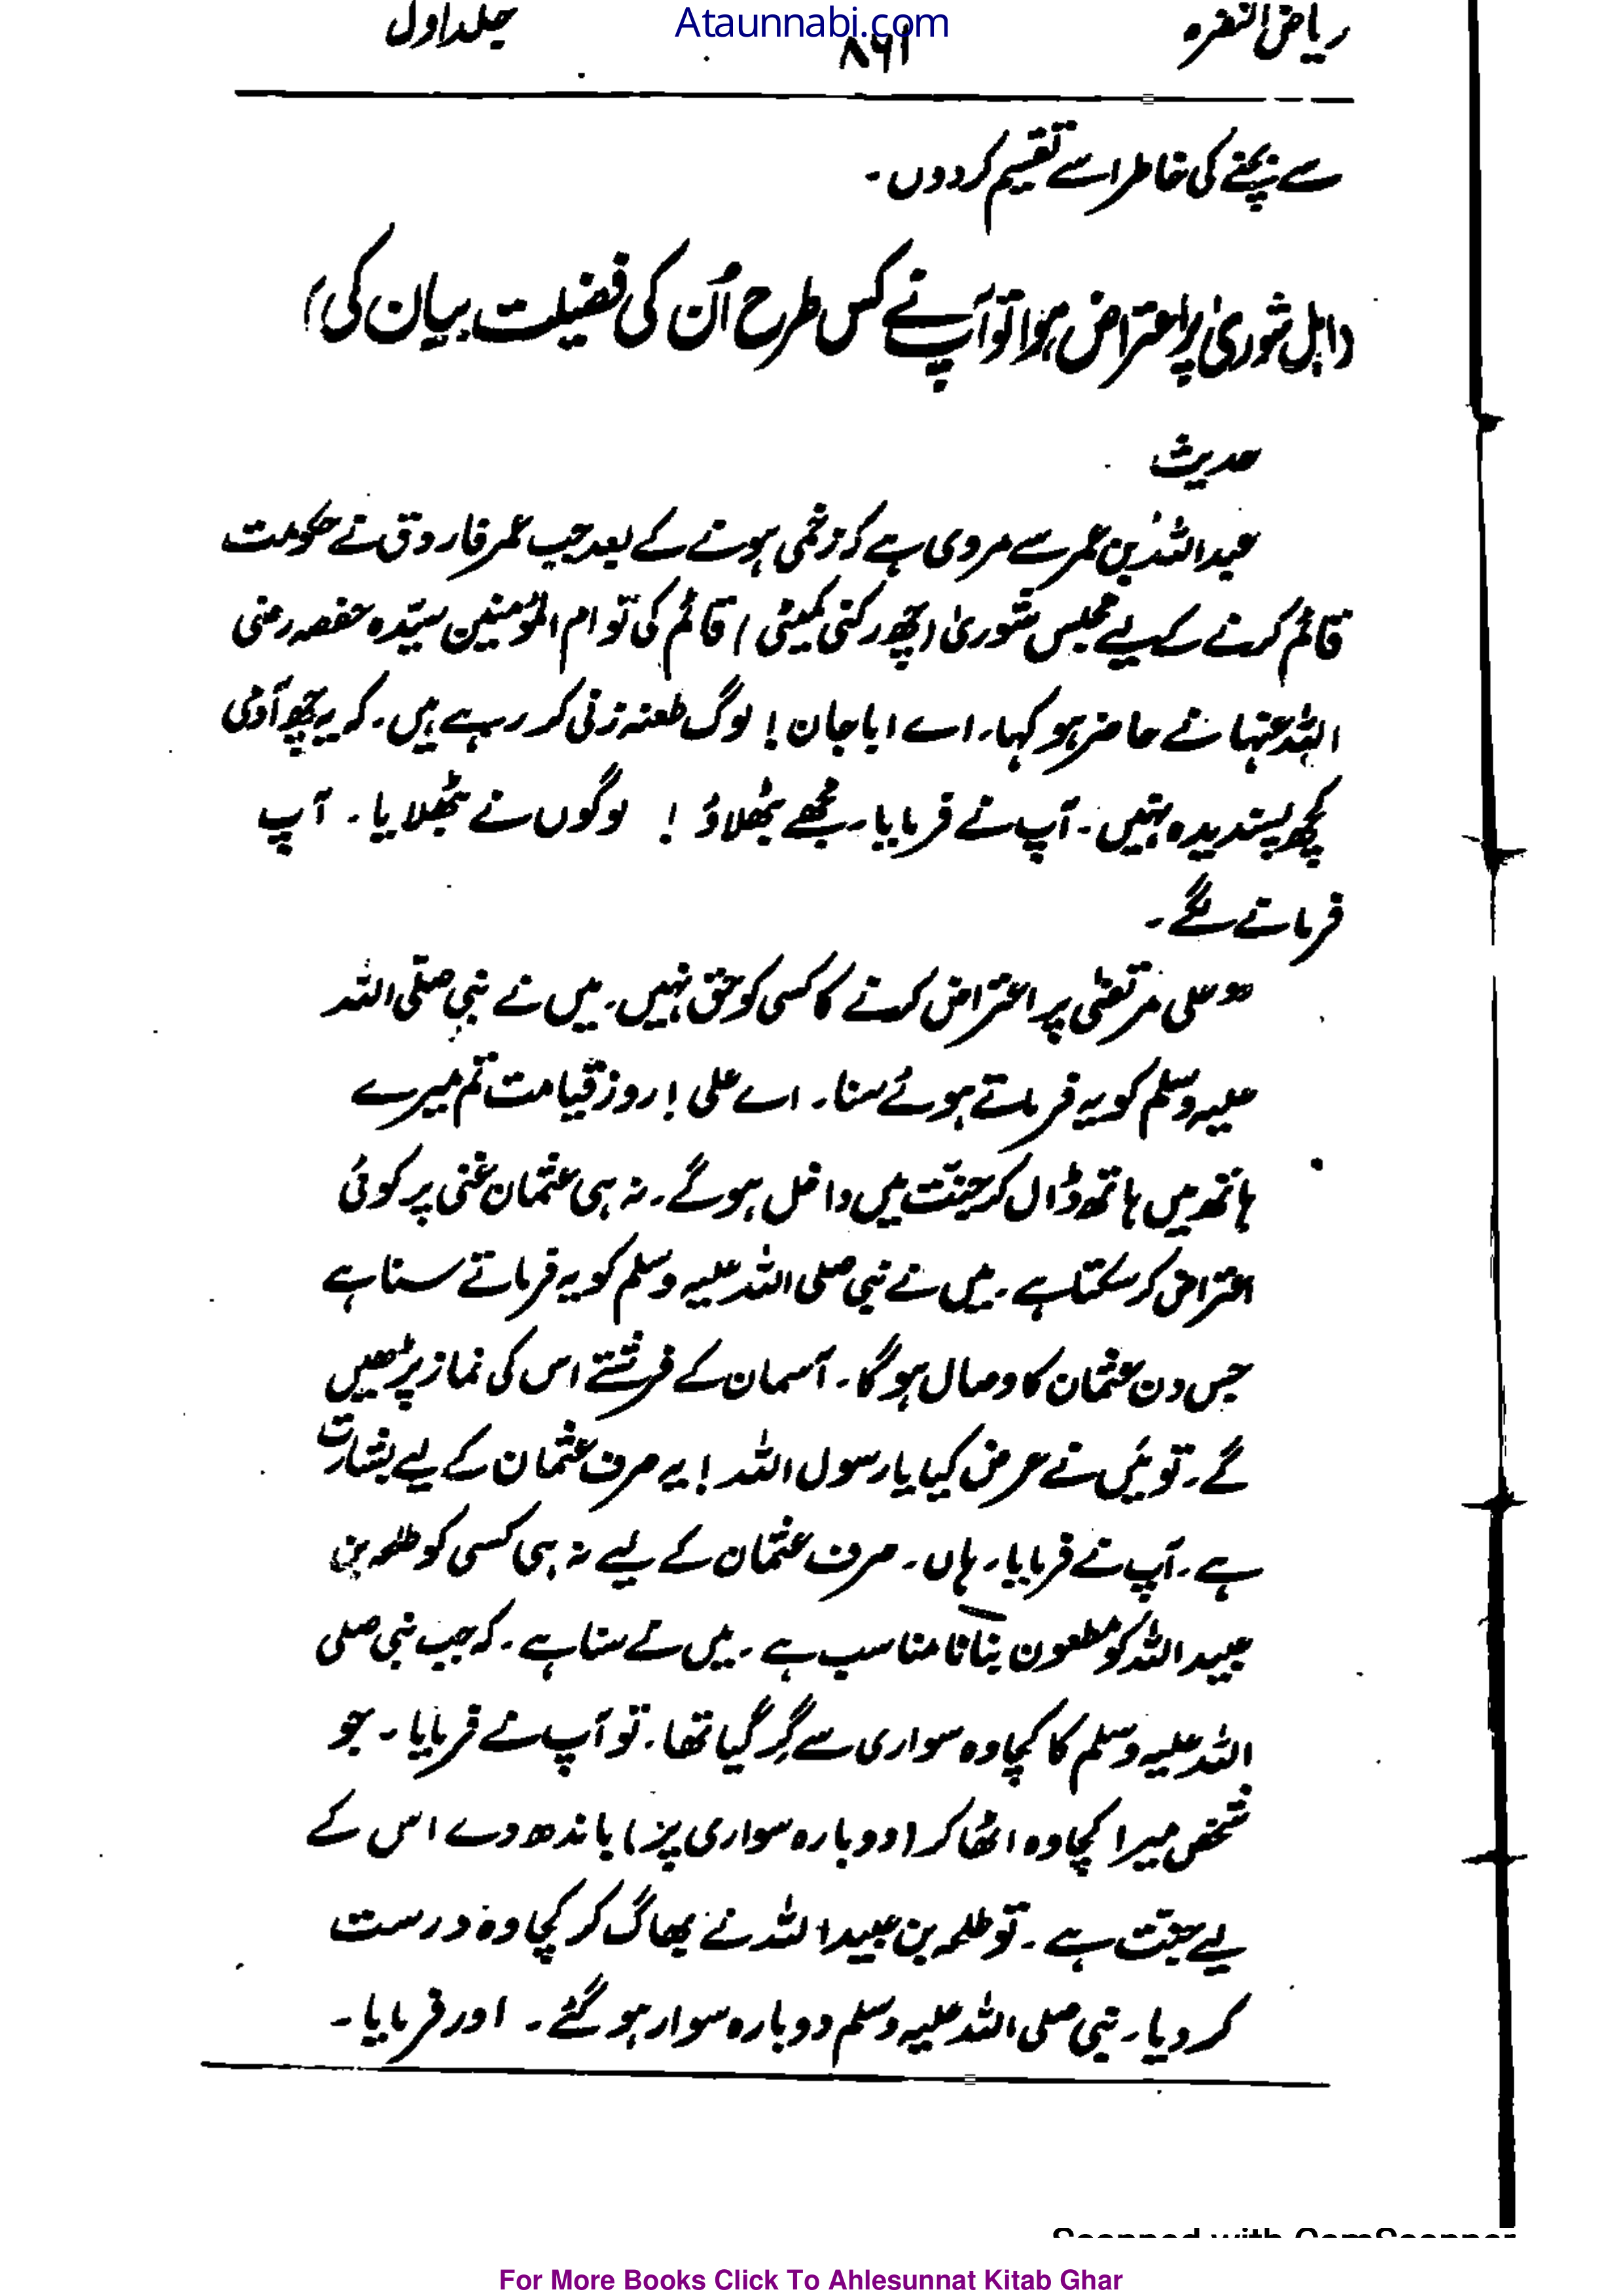 Ataunnabi.com
ریاض النضرہ ۸۶۱ جلد اول
سے بچنے کی خاطر اسے تقسیم کر دوں۔
(اہل شوریٰ پر اعتراض ہوا تو آپ نے کس طرح اُن کی فضیلت بیان کی)
حدیث
عبد اللہ بن عمر سے مروی ہے کہ زخمی ہونے کے بعد جب عمر فاروق نے حکومت
قائم کرنے کے لیے مجلس شوریٰ (چھ رکنی کمیٹی) قائم کی تو ام المؤمنین سیّدہ حفصہ رضی
اللہ عنہا نے حاضر ہو کہا۔ اے ابا جان! لوگ طعنہ زنی کر رہے ہیں۔ کہ یہ چھ آدمی
کچھ پسندیدہ نہیں۔ آپ نے فرمایا۔ مجھے بٹھلاؤ! لوگوں نے بٹھلایا۔ آپ
فرمانے لگے۔
”علی مرتضیٰ پر اعتراض کرنے کا کسی کو حق نہیں۔ میں نے نبی صلّی اللہ
علیہ وسلم کو یہ فرماتے ہوئے سنا۔ اے علی! روز قیامت تم میرے
ہاتھ میں ہاتھ ڈال کر جنّت میں داخل ہو گے۔ نہ ہی عثمان غنی پر کوئی
اعتراض کر سکتا ہے۔ میں نے نبی صلی اللہ علیہ وسلم کو یہ فرماتے سنا ہے
جس دن عثمان کا وصال ہو گا۔ آسمان کے فرشتے اس کی نماز پڑھیں
گے۔ تو میَں نے عرض کیا یا رسول اللہ! یہ صرف عثمان کے لیے بشارت
ہے۔ آپ نے فرمایا۔ ہاں۔ صرف عثمان کے لیے نہ ہی کسی کو طلحہ بن
عبید اللہ کو مطعون بنانا مناسب ہے۔ میں نے سنا ہے۔ کہ جب نبی صلی
اللہ علیہ وسلم کا کچاوہ سواری سے گِر گیا تھا۔ تو آپ نے فرمایا۔ جو
شخص میرا کچاوہ اٹھا کر (دوبارہ سواری پر) باندھ دے اس کے
لیے جنّت ہے۔ تو طلحہ بن عبید اللہ نے بھاگ کر کچاوہ درست
کر دیا۔ نبی صلی اللہ علیہ وسلم دوبارہ سوار ہو گئے۔ اور فرمایا۔
Scanned with CamScanner
For More Books Click To Ahlesunnat Kitab Ghar